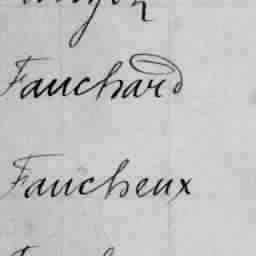 Fauchard
Faucheux